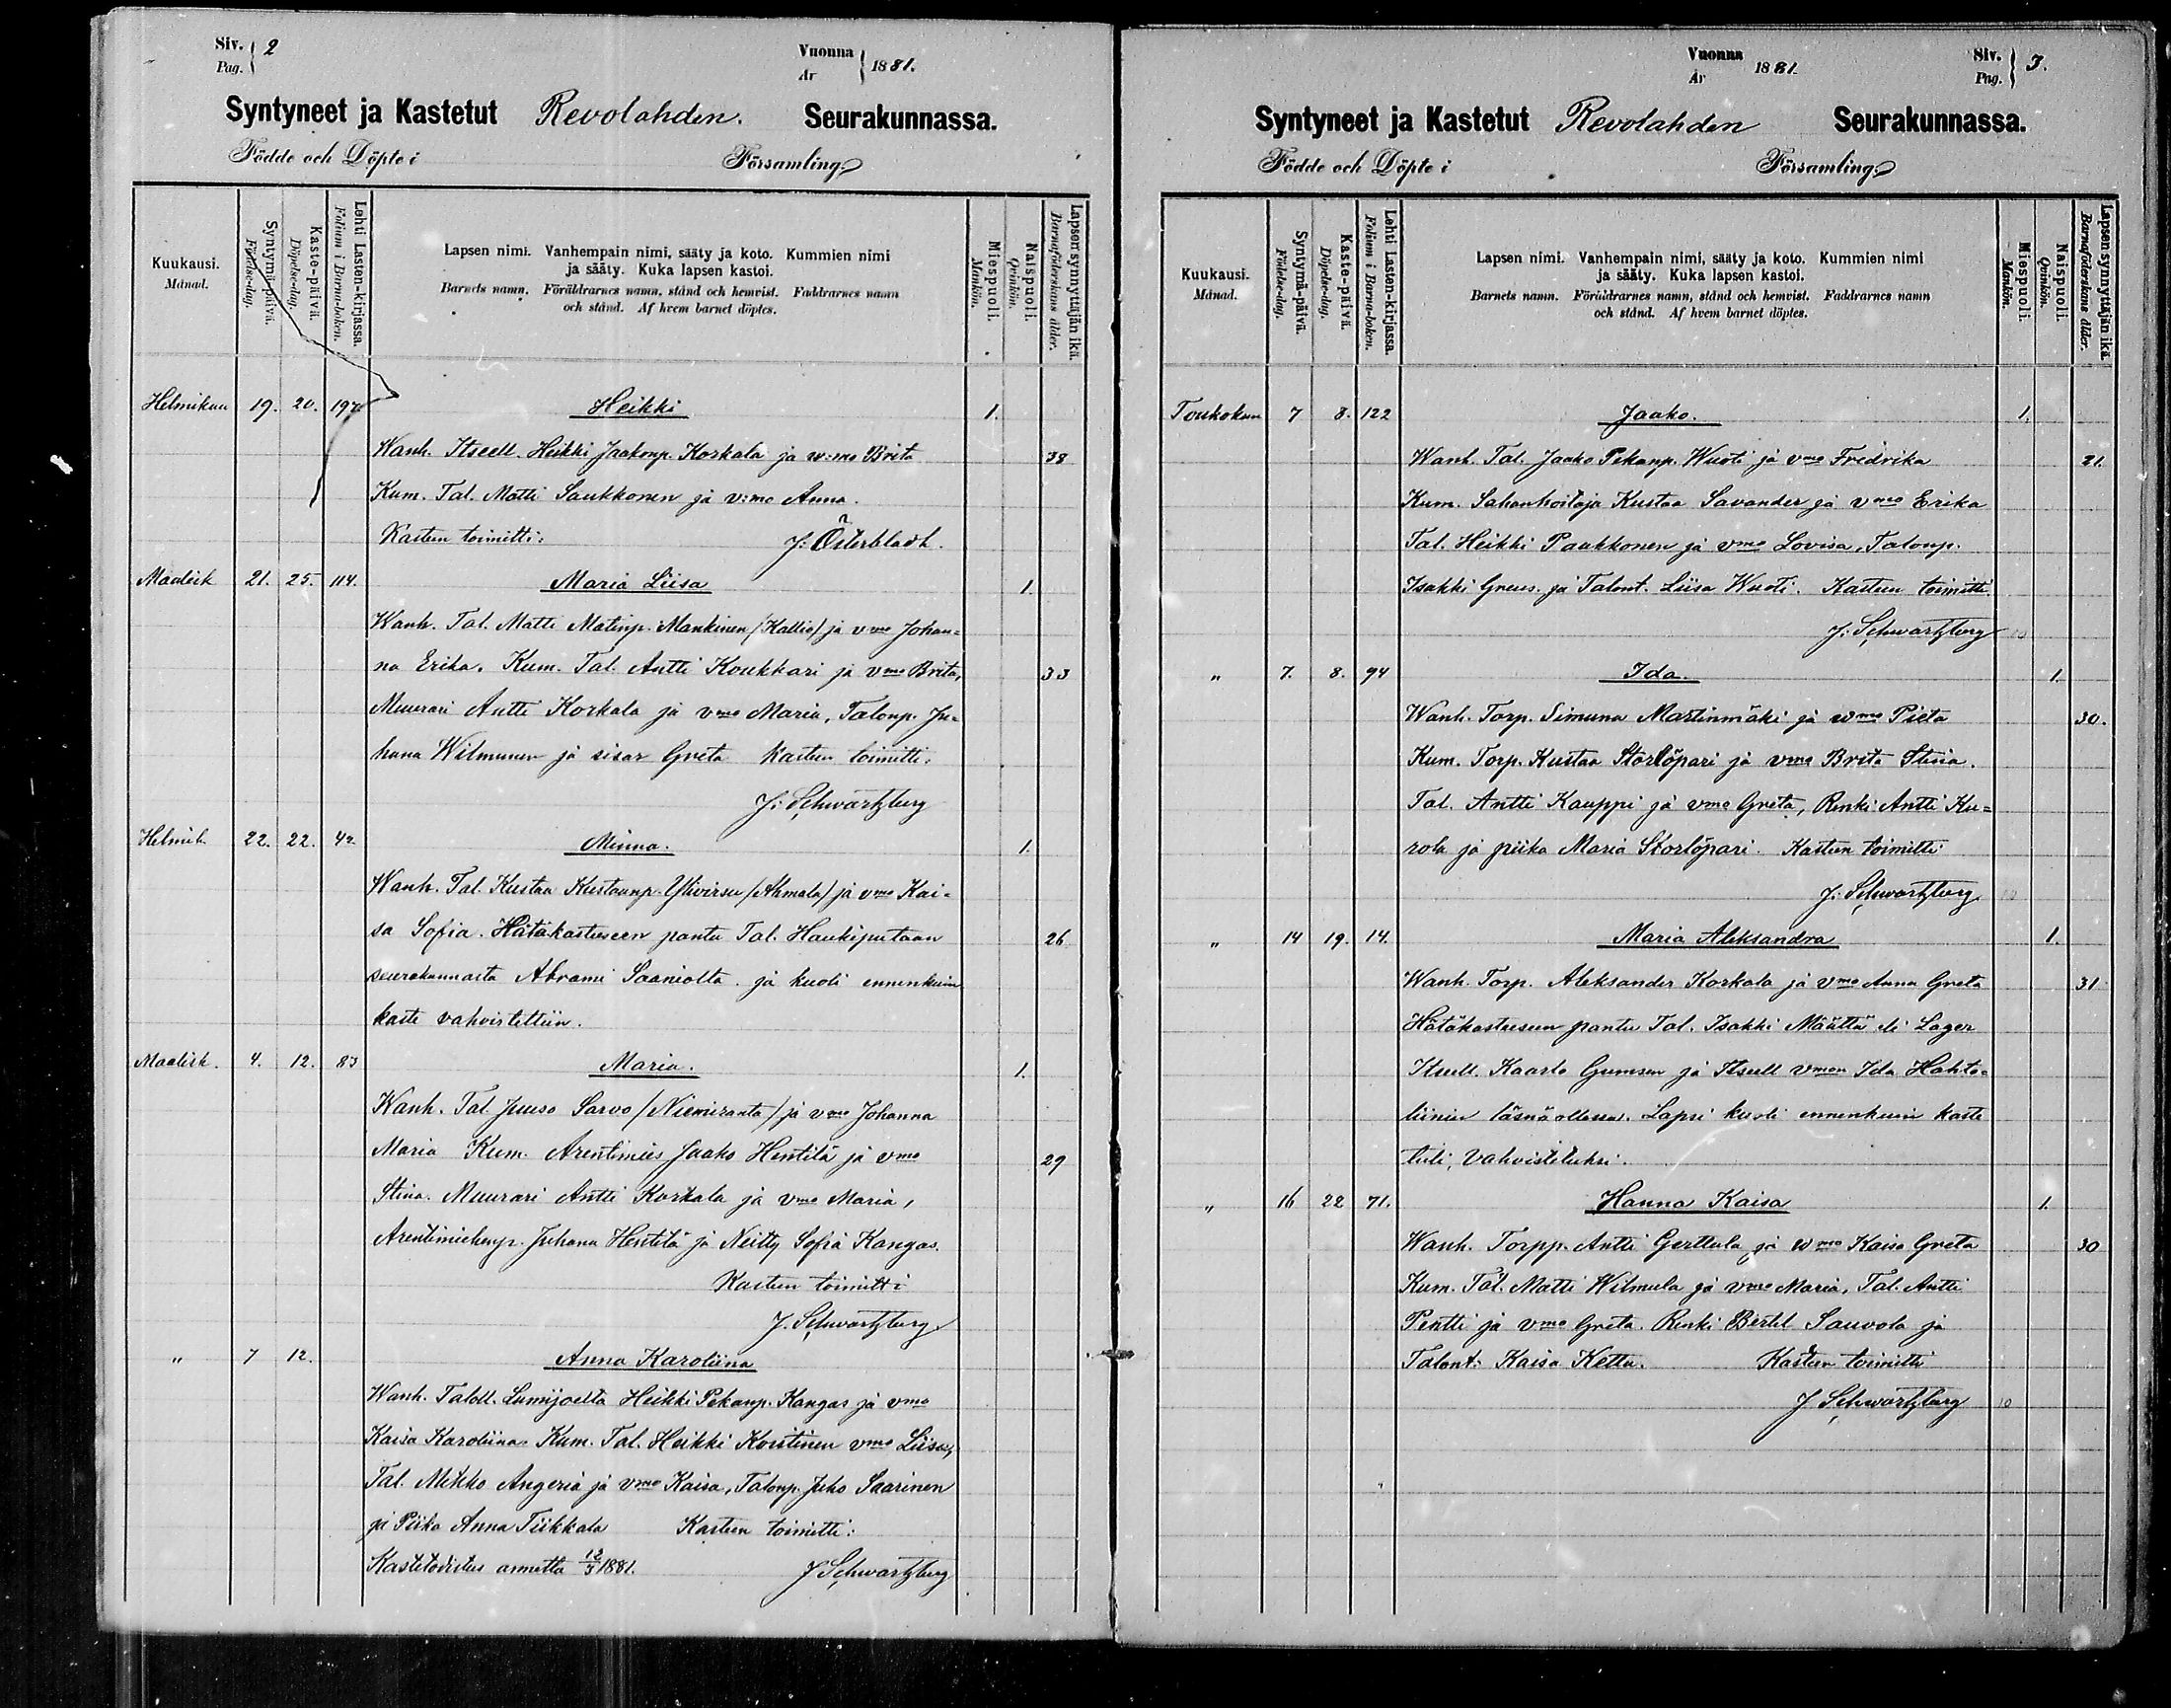 Siv. Pag. } 2
Vuonna År } 1881.
Syntyneet ja Kastetut Revolahden. Seurakunnassa.
Födde och Döpte i Församling
Kuukausi. Månad.
Syntymä-päivä. Födelse-dag.
Kaste-päivä. Döpelse-dag.
Lehti Lasten-kirjassa. Folium i Barna-boken.
Lapsen nimi. Vanhempain nimi, sääty ja koto. Kummien nimi
ja sääty. Kuka lapsen kastoi.
Barnets namn. Föräldrarnes namn, stånd och hemvist. Faddrarnes namn
och stånd. Af hvem barnet döptes.
Miespuoli. Mankön.
Naispuoli. Qvinkön.
Lapsen synnyttäjän ikä. Barnaföderskans ålder.
Helmikuu 19. 20. 197. Heikki 1.
Wanh. Itsell. Heikki Jaakonp. Korkala ja w:mo Brita 38
Kum. Tal. Matti Saukkonen ja v:mo Anna.
Kasteen toimitti: J: Österbladh.
Maalisk 21. 25. 114. Maria Liisa 1.
Wanh. Tal. Matti Matinp. Mankinen /Kallio/ ja vmo Johan=
na Erika. Kum. Tal. Antti Koukkari ja vmo Brita, 33
Muurari Antti Korkala ja vmo Maria, Talonp. Ju=
hana Wilmunen ja sisar Greta Kasteen toimitti:
J: Schwartzberg
Helmik. 22. 22. 42. Minna. 1.
Wanh. Tal. Kustaa Kustaanp. Ylivirsu /Ahmala/ ja vmo Kai=
sa Sofia. Hätäkasteseen pantu Tal. Haukiputaan 26
seurakunnasta Abrami Saaniolta ja kuoli ennenkuin
kaste vahvistettiin.
Maalisk. 4. 12. 83 Maria. 1.
Wanh. Tal Juuso Sarvo /Niemiranta/ ja vmo Johanna
Maria Kum. Arentimies Jaako Hentilä ja vmo 29
Stina. Muurari Antti Korkala ja vmo Maria,
Arentimiehenp. Juhana Hentilä ja Neitty Sofia Kangas.
Kasteen toimitti
J. Schwartzberg.
" 7 12. Anna Karoliina
Wanh. Taloll. Lumijoelta Heikki Pekanp. Kangas ja vmo
Kaisa Karoliina. Kum. Tal. Heikki Koistinen vmo Liisa,
Tal. Mikko Angeria ja vmo Kaisa, Talonp. Juho Saarinen
ja Piika Anna Tiikkala Kasteen toimitti:
Kastetodistus annettu 12/3 1881. J Schwartzberg
Vuonna År 1881.
Siv. Pag. } 3.
Syntyneet ja Kastetut Revolahden Seurakunnassa.
Födde och Döpte i Församling
Kuukausi. Månad.
Syntymä-päivä. Födelse-dag.
Kaste-päivä. Döpelse-dag.
Lehti Lasten-kirjassa. Folium i Barna-boken.
Lapsen nimi. Vanhempain nimi, sääty ja koto. Kummien nimi
ja sääty. Kuka lapsen kastoi.
Barnets namn. Föräldrarnes namn, stånd och hemvist. Faddrarnes namn
och stånd. Af hvem barnet döptes.
Miespuoli. Mankön.
Naispuoli. Qvinkön.
Lapsen synnyttäjän ikä. Barnaföderskans ålder.
Toukokuu 7 8. 122 Jaako. 1.
Wanh. Tal. Jaako Pekanp. Wuoti ja vmo Fredrika 21.
Kum. Sahanhoitaja Kustaa Savander ja vmo Erika
Tal. Heikki Paukkonen ja vmo Lovisa, Talonp.
Isakki Greus. ja Talont. Liisa Wuoti. Kasteen toimitti
J: Schwartzberg
" 7. 8. 94 Ida. 1.
Wanh. Torp. Simuna Martinmäki ja wmo Pieta 30.
Kum. Torp. Kustaa Storlöpari ja vmo Brita Stina.
Tal. Antti Kauppi ja vmo Greta, Renki Antti Ku=
rola ja piika Maria Storlöpari. Kasteen toimitti
J: Schwartzberg
" 14 19. 14. Maria Aleksandra 1.
Wanh. Torp. Aleksander Korkala ja vmo Anna Greta 31
Hätäkasteseen pantu Tal. Isakki Määttä eli Lager
Itsell. Kaarlo Gumsen ja Itsell vmon Ida Hahto=
liinin läsnäollessa. Lapsi kuoli ennenkuin kaste
tuli vahvistetuksi.
" 16 22 71. Hanna Kaisa 1.
Wanh. Torpp. Antti Gerttula ja wmo Kaisa Greta 30
Kum. Tal. Matti Wilmula ja vmo Maria, Tal. Antti
Pentti ja vmo Greta. Renki Bertel Sauvola ja
Talont. Kaisa Kettu. Kasteen toimitti
J Schwartzberg